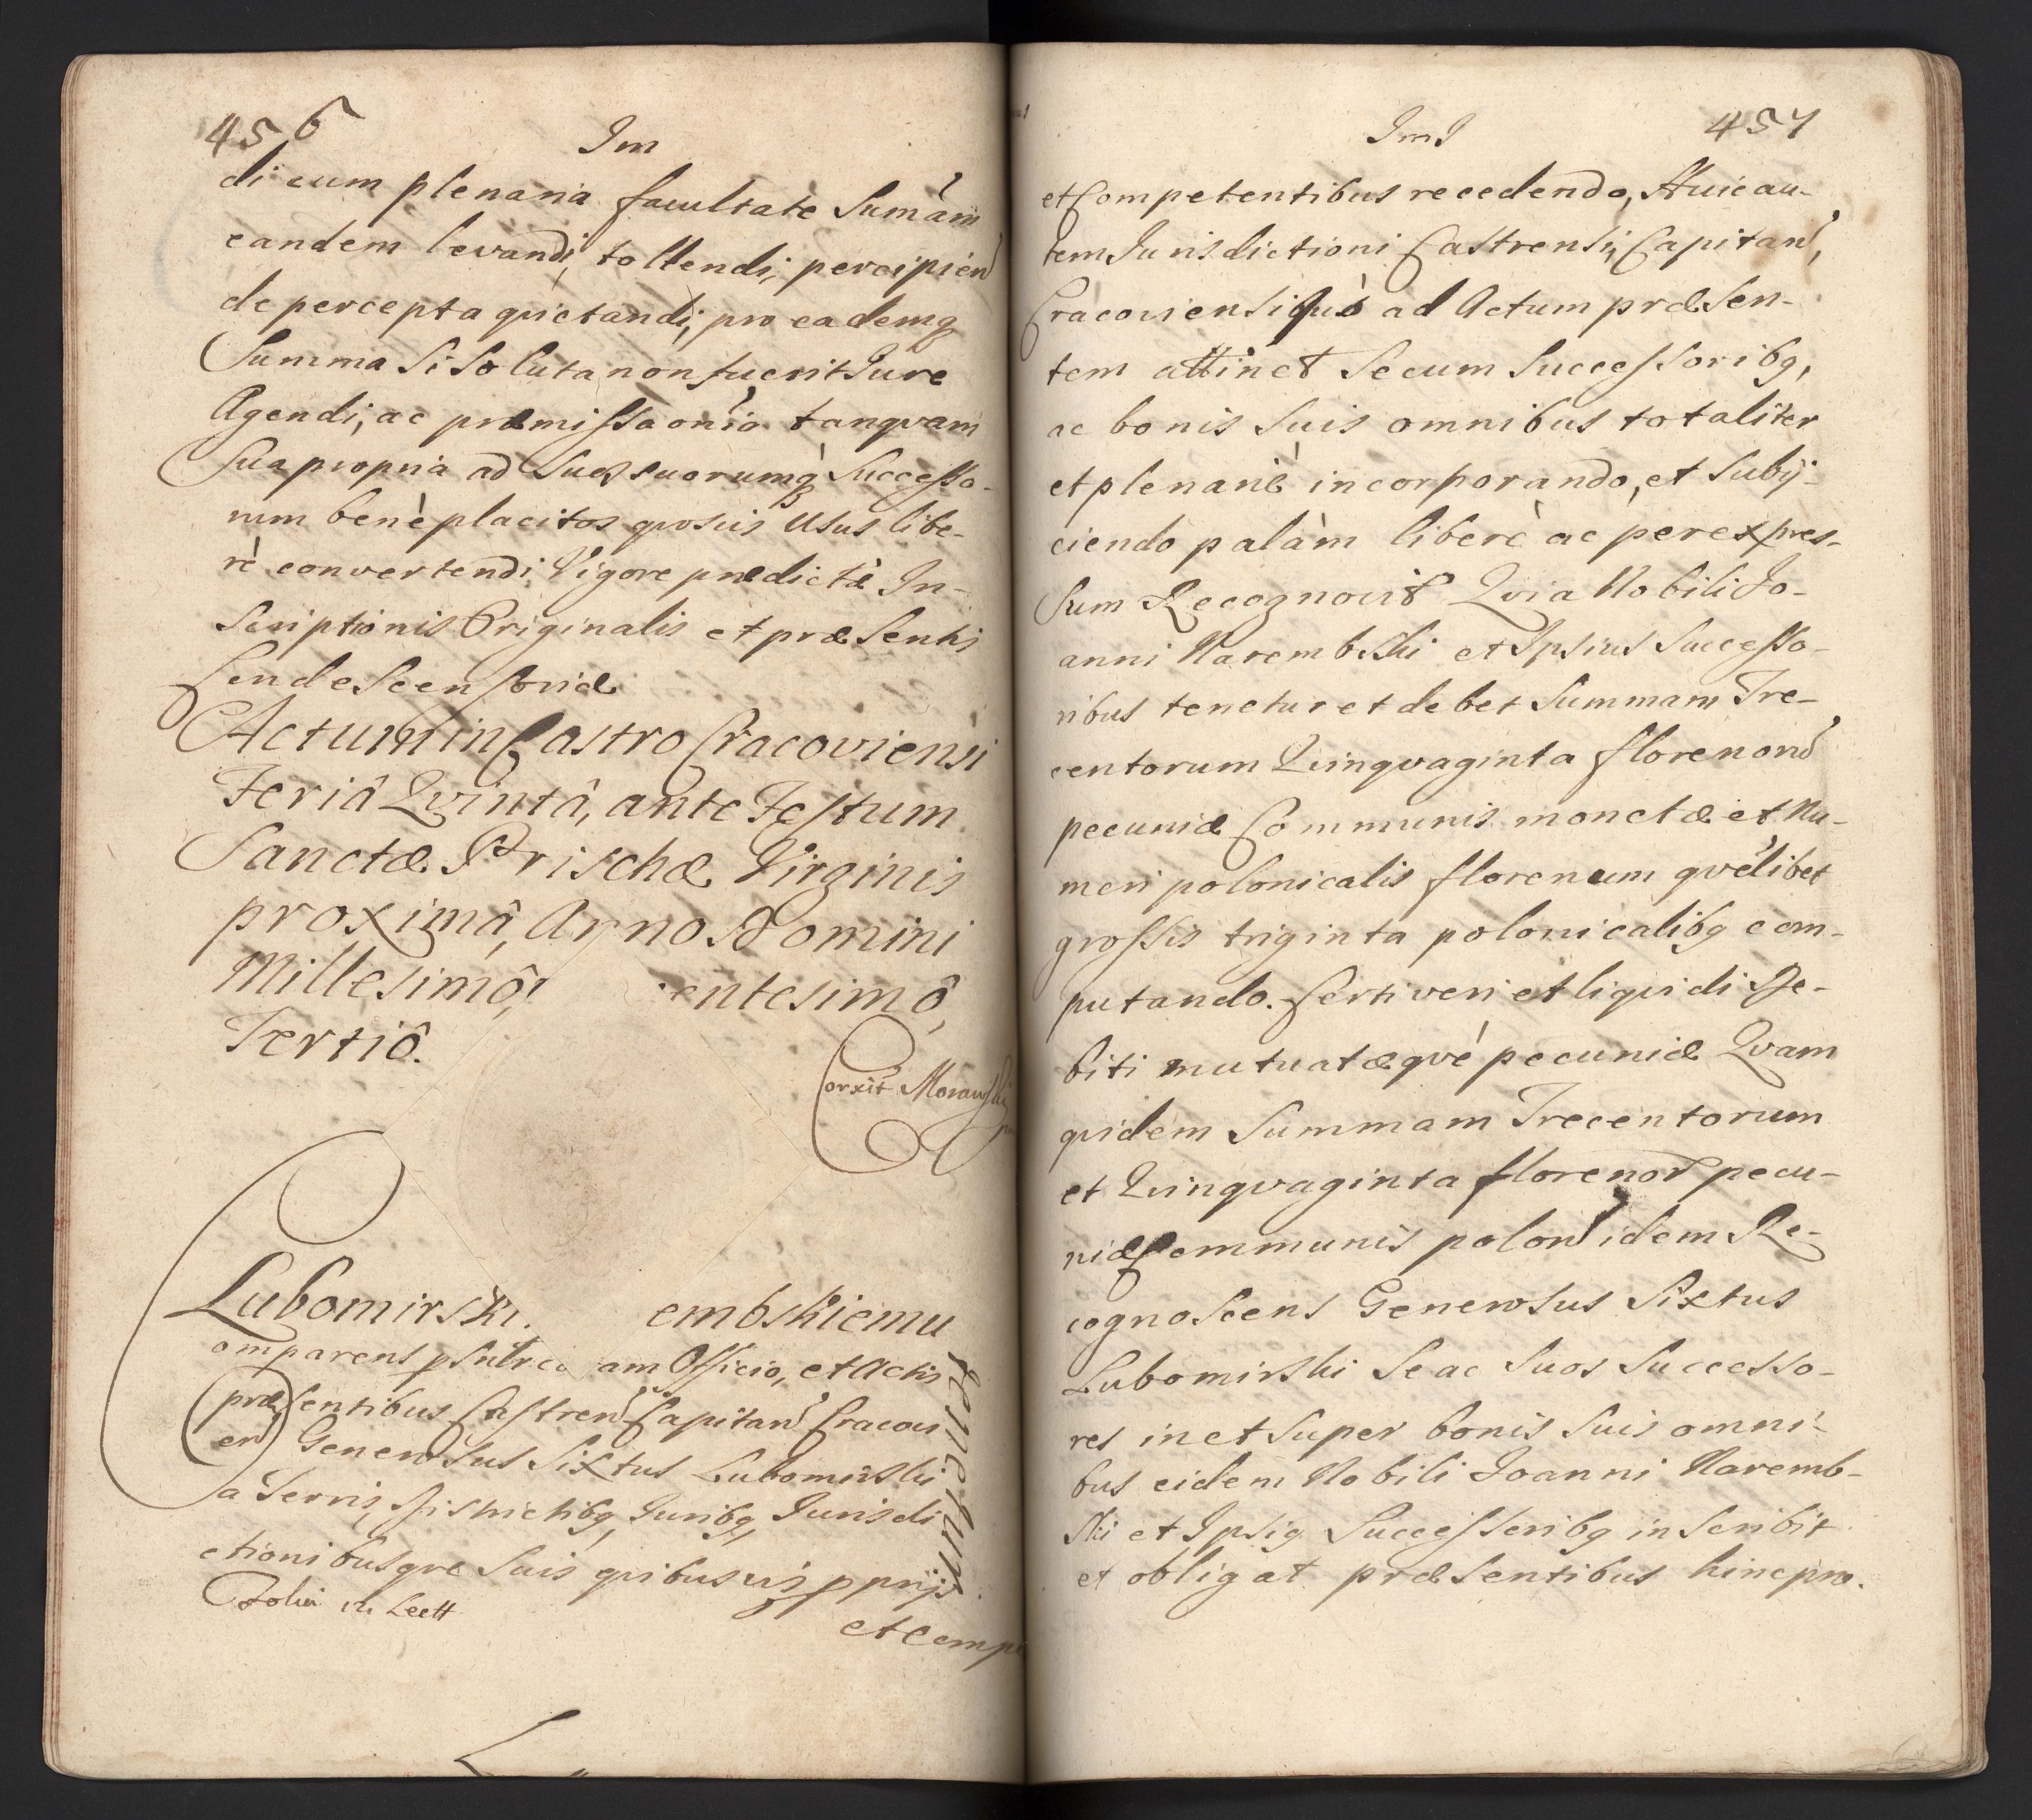 456
Im
di cum plenaria facultate Sumãm
eandem levandi, tollendi, percipien
de percepta qvietandi, pro eademq
Summa Si Soluta non fuerit Jure
Agendi, ac præmissa oñia tanqvam
Sua propria ad Suos suorumq Successo-
rum benèplacitos qvosvis Usus libe-
rè convertendi Vigore prædictæ In-
scriptionis Originalis et præsentis
Condescensoriæ
Actum in Castro Cracoviensi
Feriâ Qvintâ, ante Festum
Sanctæ Prischæ Virginis
proximâ, Anno Domini
Millesimô, entesimô,
Tertiô.
Corxit Moraw
Lubomirski. embskiemu
omparens psnlr am Officio, et Actis
præsentibus Castren Capitan Cracovi
en Generosus Sixtus Lubomirski
a Terris, Districtibq, Juribq, Jurisdi
ctionibusqve Suis qvibusvis pprijs
et comp
457
ImI
et Competentibus recedendo, Huic au-
tem Jurisdictioni Castrensi, Capitan,
Cracoviensi qvò ad Actum præsen-
tem attinet Secum Successoribq,
ac bonis Suis omnibus totaliter
et plenariè incorporando, et Subij-
ciendo palàm liberè ac per expres-
Sum Recognovit Qvia Nobili Jo-
anni Narembski et Ipsius Successo-
ribus tenetur et debet Summam Tre-
centorum Qvinqvaginta florenorū
pecuniæ Communis monetæ et Nu-
meri polonicalis florenum qvélibet
grossis triginta polonicalibq com-
putando. Certi veri et liqvidi De-
biti mutuatæqvè pecuniæ Qvam
qvidem Summam Trecentorum
et Qvinqvaginta florenor pecu-
niæ Communis polon idem Re-
cognoscens Generosus Sixtus
Lubomirski Se ac Suos Successo-
res in et Super bonis Suis omni-
bus eidem Nobili Joanni Naremb-
ski et Ipsiq Successoribq inscribit
et obligat præsentibus hinc pro.